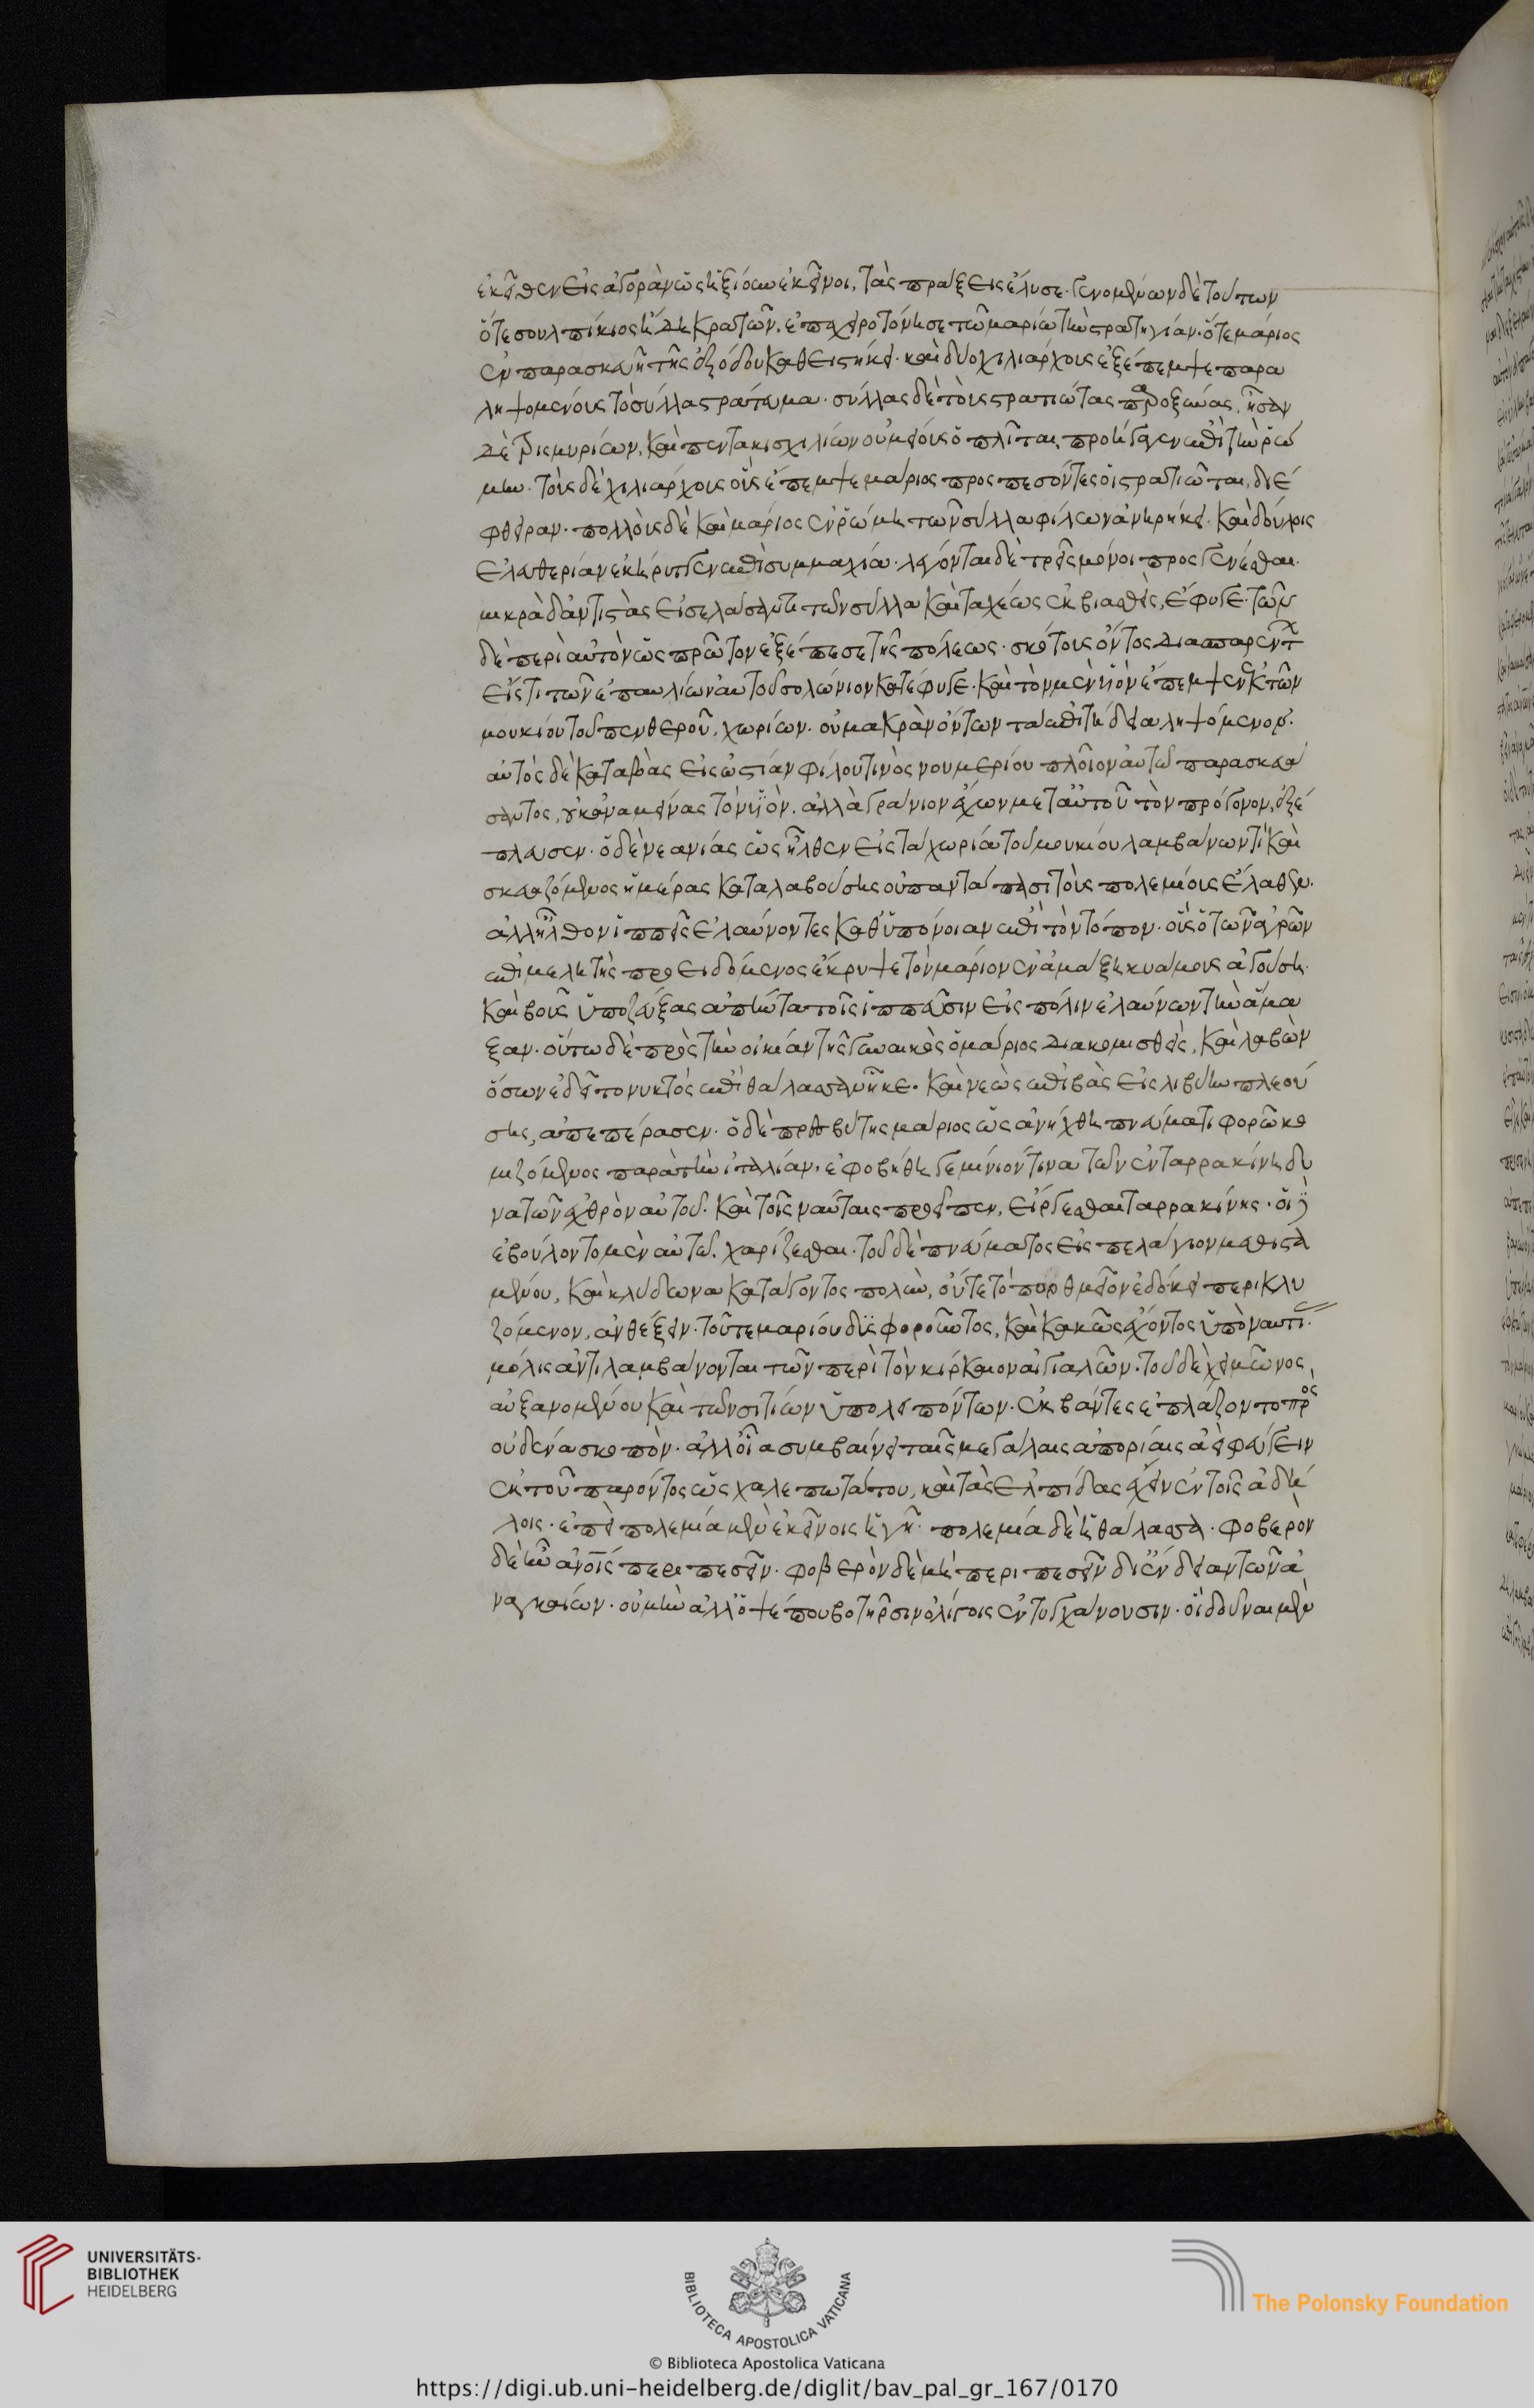 ἐκεῖθεν εἰς ἀγορὰν ὡς ἠξίουν ἐκεῖνοι, τὰς πράξεις ἔλυσε. γενομένων δὲ τούτων
ὅτε σουλπίκιος ἤδη κρατῶν, ἐπεχειροτόνησε τῶ μαρίω τὴν στρατηγίαν. ὅ τε μάριος
ἐν παρασκευῆ τῆς ἐξόδου καθειστήκει. καὶ δύο χιλιάρχους ἐξέπεμψε παρα
ληψομένους τὸ σύλλα στράτευμα. σύλλας δὲ τοὺς στρατιώτας παροξύνας, ἦσαν
δὲ τρισμυρίων, καὶ πεντακισχιλίων οὐ μείους ὁπλῖται, προήγαγεν ἐπὶ τὴν ῥώ
μην. τοῖς δὲ χιλιάρχοις οὓς ἔπεμψε μάριος προσπεσόντες οἱ στρατιῶται, διέ
φθειραν. πολλοὺς δὲ καὶ μάριος ἐν ῥώμη τῶν σύλλα φίλων ἀνηρήκει. καὶ δούλοις
ἐλευθερίαν ἐκήρυττεν ἐπὶ συμμαχία. λέγονται δὲ τρεῖς μόνοι προσγενέσθαι.
μικρὰ δ' ἀντιστὰς εἰσελάσαντι τῶ σύλλα καὶ ταχέως ἐκβιασθεὶς, ἔφυγε. τῶν
δὲ περὶ αὐτὸν ὡς πρῶτον ἐξέπεσε τῆς πόλεως. σκότους ὄντος διασπαρέντ
εἴς τι τῶν ἐπαυλίων αὐτοῦ σολώνιον κατέφυγε. καὶ τὸν μὲν υἱὸν ἔπεμψεν ἐκ τῶν
μουκίου τοῦ πενθεροῦ, χωρίων. οὐ μακρὰν ὄντων τὰ ἐπιτήδεια ληψόμενον.
αὐτὸς δὲ καταβὰς εἰς ὠστίαν φίλου τινὸς νουμερίου πλοῖον αὐτῶ παρασκευά
σαντος, οὐκ ἀναμείνας τὸν υἱὸν. ἀλλὰ γράνιον ἔχων μετ' αὐτοῦ τὸν πρόγονον, ἐξέ
πλευσεν. ὁ δὲ νεανίας ὡς ἦλθεν εἰς τὰ χωρία τοῦ μουκίου λαμβάνων τὶ καὶ
σκευαζόμενος ἡμέρας καταλαβούσης οὐ παντάπασι τοὺς πολεμίους ἔλαθεν.
ἀλλ' ἦλθον ἱππεῖς ἐλαύνοντες καθ' ὑπόνοιαν ἐπὶ τὸν τόπον. οὓς ὁ τῶν ἀγρῶν
ἐπιμελητὴς προειδόμενος ἔκρυψε τὸν μάριον ἐν ἁμάξη κυάμους ἀγούση.
καὶ βοῦς ὑποζεύξας ἀπήντα τοῖς ἱππεῦσιν εἰς πόλιν ἐλαύνων τὴν ἅμα
ξαν. οὕτω δὲ πρὸς τὴν οἰκίαν τῆς γυναικὸς ὁ μάριος διακομισθεὶς, καὶ λαβὼν
ὅσων ἐδεῖτο νυκτὸς ἐπὶ θάλασσαν ἧκε. καὶ νεὼς ἐπιβὰς εἰς λιβύην πλεού
σης, ἀπεπέρασεν. ὁ δὲ πρεσβύτης μάριος ὡς ἀνήχθη πνεύματι φορῶ κο
μιζόμενος παρὰ τὴν ἰταλίαν. ἐφοβήθη γεμίνιόν τινα τῶν ἐν ταρρακίνη δυ
νατῶν ἐχθρὸν αὐτοῦ. καὶ τοῖς ναύταις προεῖπεν, εἴργεσθαι ταρρακίνης. οἱ δὲ
ἐβούλοντο μὲν αὐτῶ χαρίζεσθαι. τοῦ δὲ πνεύματος εἰς πελάγιον μεθιστα
μένου, καὶ κλύδωνα κατάγοντος πολὺν, οὔτε τὸ πορθμεῖον ἐδόκει περικλυ
ζόμενον, ἀνθέξειν. τοῦ τε μαρίου δυσφοροῦντος, καὶ κακῶς ἔχοντος ὑπὸ ναυτι.
μόλις ἀντιλαμβάνονται τῶν περὶ τὸν κιρκαιον αἰγιαλῶν. τοῦ δὲ χειμῶνος
αὐξανομένου καὶ τῶν σιτίων ὑπολειπόντων. ἐκβάντες ἐπλάζοντο πρὸς
οὐδένα σκοπὸν. ἀλλ' οἷα συμβαίνει ταῖς μεγάλαις ἀπορίαις ἀεὶ φεύγειν
ἐκ τοῦ παρόντος ὡς χαλεπωτάτου, καὶ τὰς ἐλπίδας ἔχειν ἐν τοῖς ἀδή
λοις. ἐπεὶ πολεμία μὲν ἐκείνοις ἡ γῆ. πολεμία δὲ ἡ θάλασσα. φοβερὸν
δὲ ἦν ἀνοις περιπεσεῖν. φοβερὸν δὲ μὴ περιπεσεῖν δι' ἔνδειαν τῶν ἀ
ναγκαίων. οὐ μὴν ἀλλ' ὀψέ που βοτῆρσιν ὀλίγοις ἐντυγχάνουσιν. οἳ δοῦναι μὲν
UNIVERSITÄTS-
BIBLIOTHEK
HEIDELBERG
BIBLIOTECA APOSTOLICA VATICANA
The Polonsky Foundation
© Biblioteca Apostolica Vaticana
https://digi.ub.uni-heidelberg.de/diglit/bav_pal_gr_167/0170